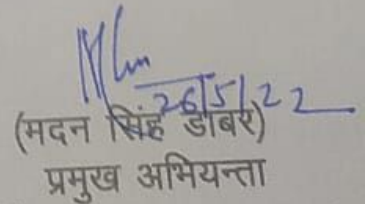 26/5/22
(मदन सिंह डाबर)
प्रमुख अभियन्ता